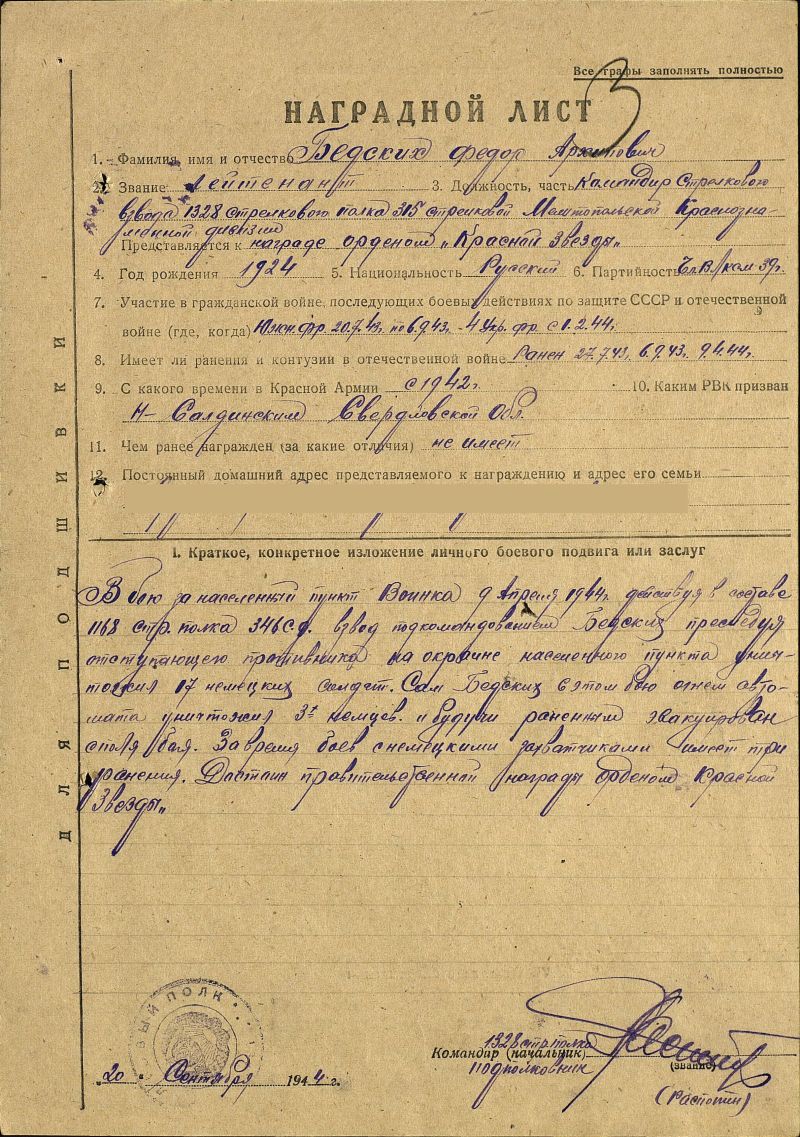 Все графы заполнять полностью
3
НАГРАДНОЙ ЛИСТ
1. Фамилия, имя и отчество Бедских Федор Архипович
2. Звание лейтенант 3. Должность, часть Командир Стрелкового
взвода 1328 стрелкового полка 315 стрелковой Мелитопольской Краснозна-
менной дивизии
Представляется к награде орденом „Красной Звезды"
4. Год рождения 1924 5. Национальность Русский 6. Партийность Чл. ВЛКСМ 39г.
7. Участие в гражданской войне, последующих боевых действиях по защите СССР и отечественной
войне (где, когда) Южн фр. 20.7.43, по 6.9.43. - 4 Укр. фр. с 1.2.44.
8. Имеет ли ранения и контузии в отечественной войне Ранен 27.7.43, 6.9.43. 9.4.44г.
9. С какого времени в Красной Армии с 1942г. 10. Каким РВК призван
Н-Салдинским Свердловской Обл.
11. Чем ранее награжден (за какие отличия) не имеет
12. Постоянный домашний адрес представляемого к награждению и адрес его семьи
I. Краткое, конкретное изложение личного боевого подвига или заслуг
В бою за населенный пункт Воинка 9 Апреля 1944г. действуя в составе
1168 стр. полка 346 с.д. взвод под командованием Бедских преследуя
отступающего противника на окраине населенного пункта унич-
тожил 17 немецких солдат. Сам Бедских в этом бою огнем авто-
мата уничтожил 3х немцев. и будучи раненным эвакуирован
с поля боя. За время боев с немецкими захватчиками имеет три
ранения. Достоин правительственной награды Орденом Красной
Звезды„
ДЛЯ ПОДШИВКИ
ВЫЙ ПОЛК
1328 стр. полка
Командир (начальник)
подполковник
(звание)
(Распопин)
„20 Сентября 1944 г.